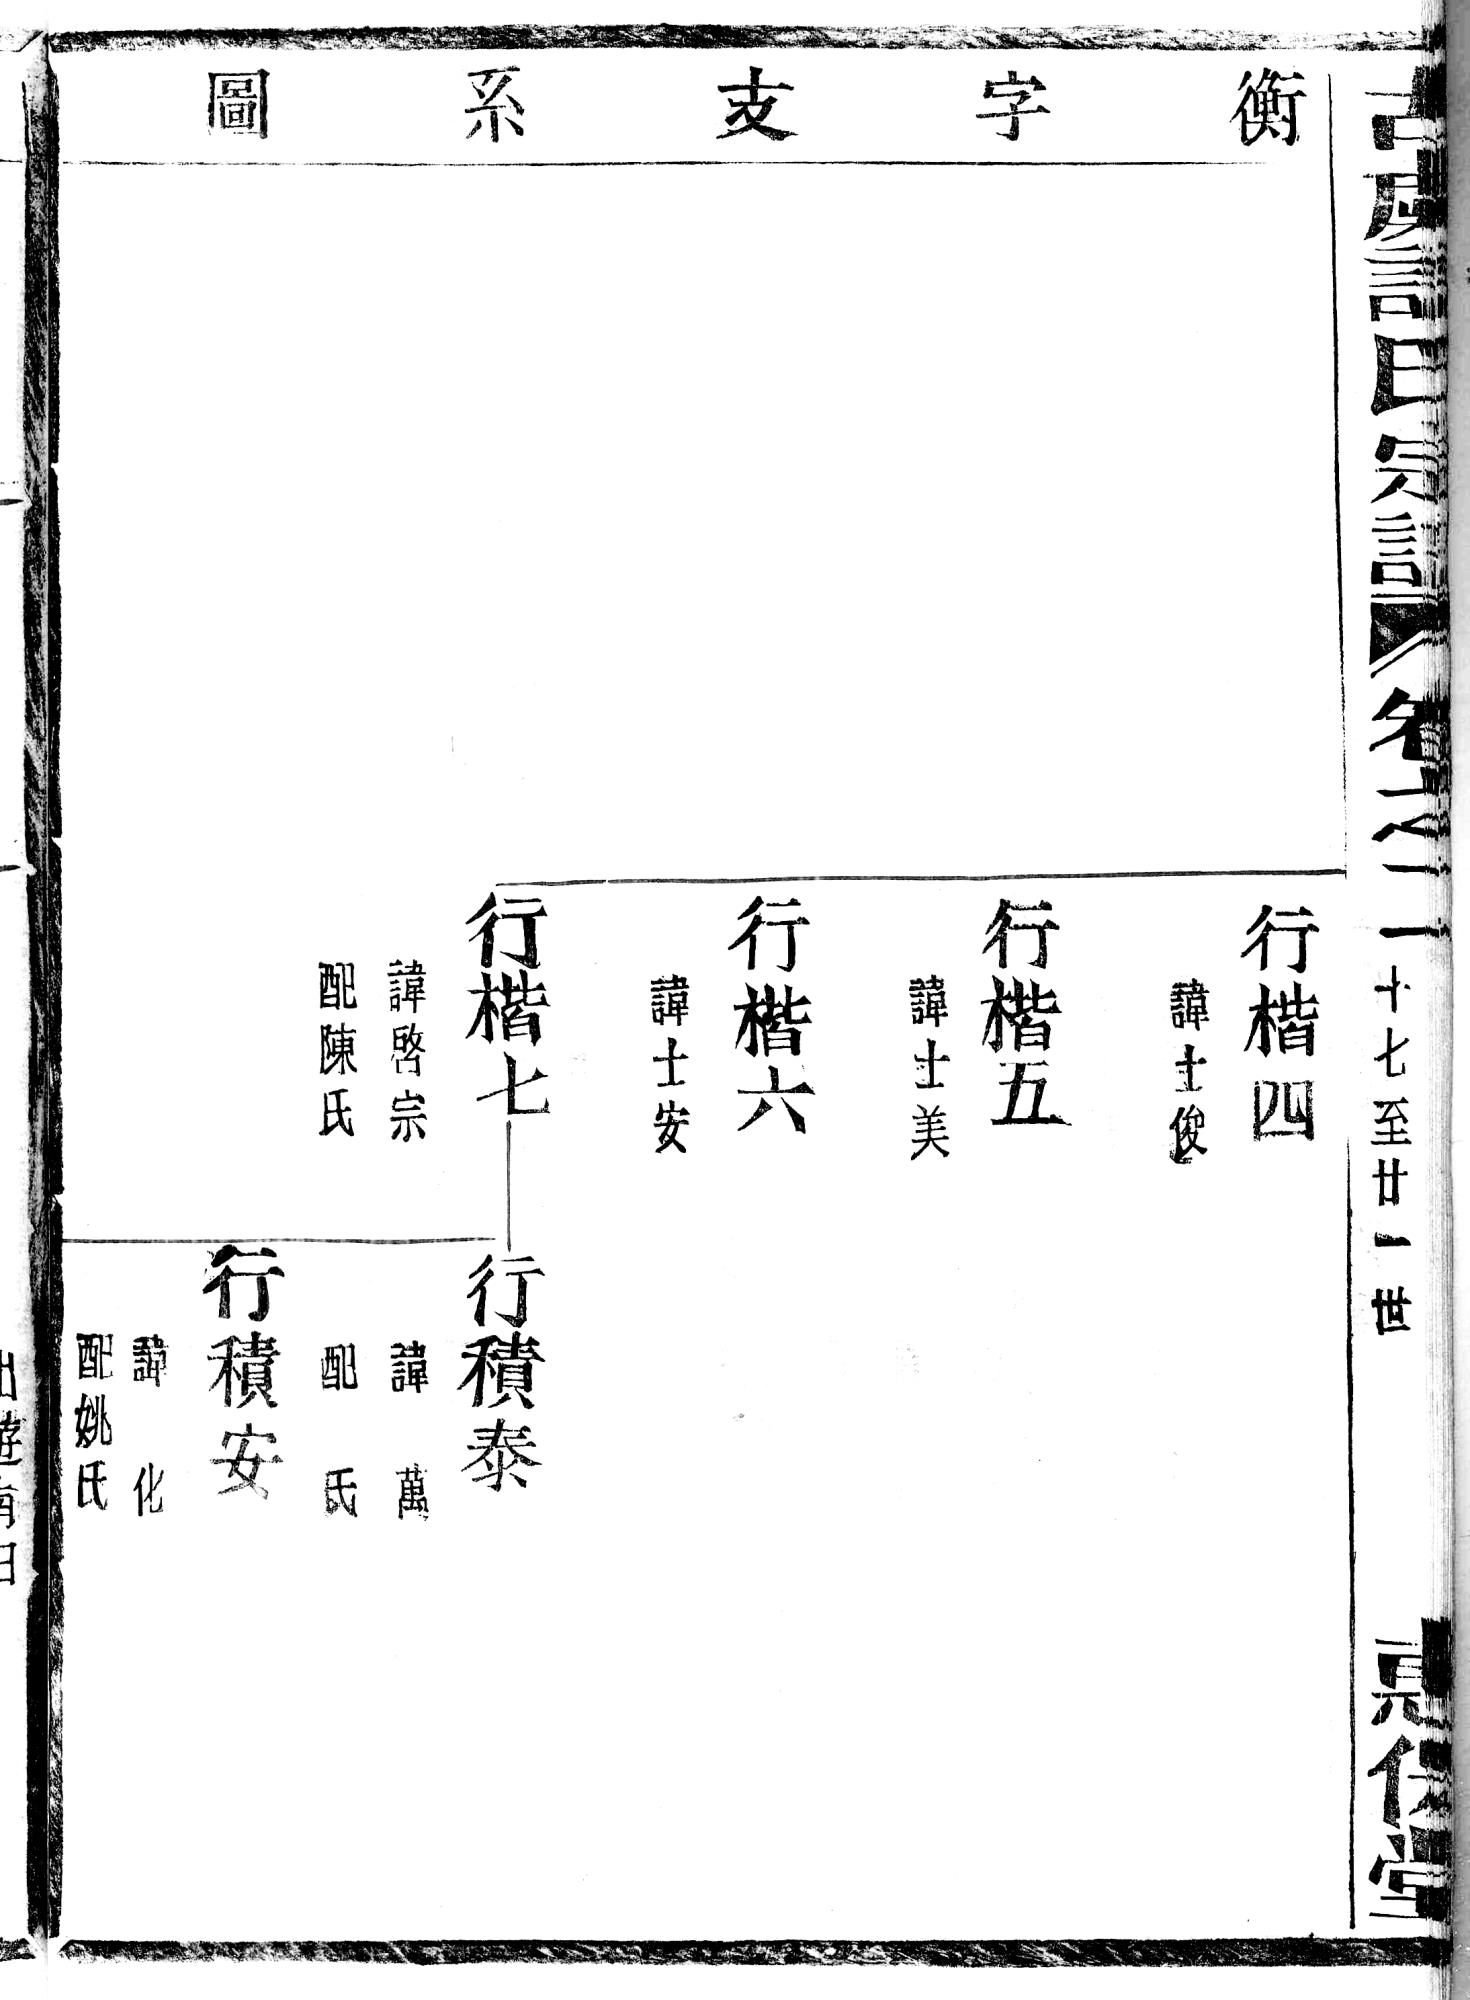 衡字支系圖
行楷四
諱士俊
行楷五
諱士美
行楷六
諱士安
行楷七
諱啓宗
配陳氏
行積泰
諱 萬
配 氏
行積安
諱 化
配姚氏
氏宗譜 卷之二 十七至廿一世
堂